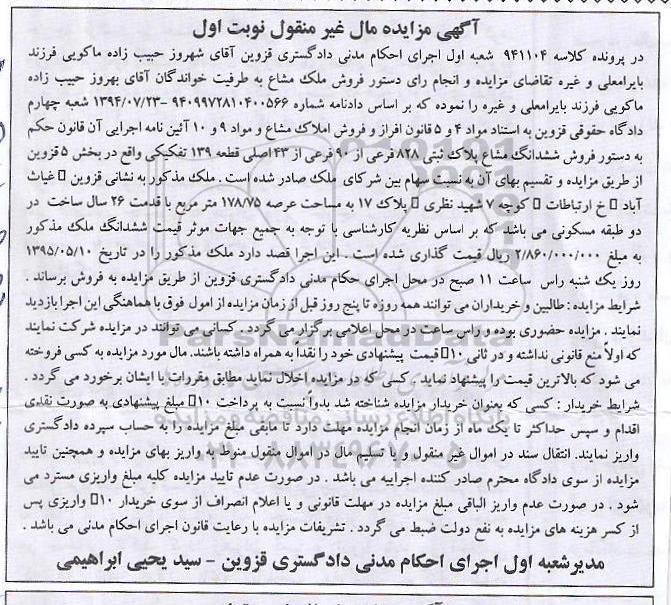 آگهی مزایده مال غیر منقول نوبت اول
در پرونده کلاسه ۹۴۱۱۰۴ شعبه اول اجرای احکام مدنی دادگستری قزوین آقای شهروز حبیب زاده ماکویی فرزند
بایرامعلی و غیره تقاضای مزایده و انجام رای دستور فروش ملک مشاع به طرفیت خواندگان آقای بهروز حبیب زاده
ماکویی فرزند بایرامعلی و غیره را نموده که بر اساس دادنامه شماره ۹۴۰۹۹۷۲۸۱۰۴۰۰۵۶۶ -۱۳۹۴/۰۷/۲۳ شعبه چهارم
دادگاه حقوقی قزوین به استناد مواد ۴ و ۵ قانون افراز و فروش املاک مشاع و مواد ۹ و ۱۰ آئین نامه اجرایی آن قانون حکم
به دستور فروش ششدانگ مشاع پلاک ثبتی ۸۲۸ فرعی از ۹۰ فرعی از ۴۳ اصلی قطعه ۱۳۹ تفکیکی واقع در بخش ۵ قزوین
از طریق مزایده و تقسیم بهای آن به نسبت سهام بین شرکای ملک صادر شده است . ملک مذکور به نشانی قزوین غیاث
آباد خ ارتباطات کوچه ۷ شهید نظری پلاک ۱۷ به مساحت عرصه ۱۷۸/۷۵ متر مربع با قدمت ۲۶ سال ساخت در
دو طبقه مسکونی می باشد که بر اساس نظریه کارشناسی با توجه به جمیع جهات موثر قیمت ششدانگ ملک مذکور
به مبلغ ۲/۸۶۰/۰۰۰/۰۰۰ ریال قیمت گذاری شده است . این اجرا قصد دارد ملک مذکور را در تاریخ ۱۳۹۵/۰۵/۱۰
روز یک شنبه راس ساعت ۱۱ صبح در محل اجرای حکام مدنی دادگستری قزوین از طریق مزایده به فروش برساند .
شرایط مزایده : طالبین و خریداران می توانند همه روزه تا پنج روز قبل از زمان مزایده از امول فوق با هماهنگی این اجرا بازدید
نمایند . مزایده حضوری بوده و راس ساعت در محل اعلامی برگزار می گردد . کسانی می توانند در مزایده شرکت نمایند
که اولاً منع قانونی نداشته و در ثانی ۱۰ قیمت پیشنهادی خود را نقدا به همراه داشته باشند. مال مورد مزایده به کسی فروخته
می شود که بالاترین قیمت را پیشنهاد نماید . کسی که در مزایده اخلال نماید مطابق مقررات با ایشان برخورد می گردد .
شرایط خریدار : کسی که بعنوان خریدار مزایده شناخته شد بدواً نسبت به پرداخت ۱۰ مبلغ پیشنهادی به صورت نقدی
اقدام و سپس حداکثر تا یک ماه از زمان انجام مزایده مهلت دارد تا مابقی مبلغ مزایده را به حساب سپرده دادگستری
واریز نمایند. انتقال سند در اموال غیر منقول و یا تسلیم مال در اموال منقول منوط به واریز بهای مزایده و همچنین تایید
مزایده از سوی دادگاه محترم صادر کننده اجراییه می باشد . در صورت عدم تایید مزایده کلیه مبلغ واریزی مسترد می
شود . در صورت عدم واریز الباقی مبلغ مزایده در مهلت قانونی و یا اعلام انصراف از سوی خریدار ۱۰ واریزی پس
از کسر هزینه های مزایده به نفع دولت ضبط می گردد . تشریفات مزایده با رعایت قانون اجرای احکام مدنی می باشد .
مدیرشعبه اول اجرای احکام مدنی دادگستری قزوین - سید یحیی ابراهیمی
ParsNamadData
پایگاه اطلاع رسانی مناقصه و مزایده